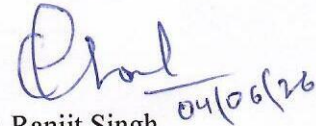 04/06/26
Ranjit Singh